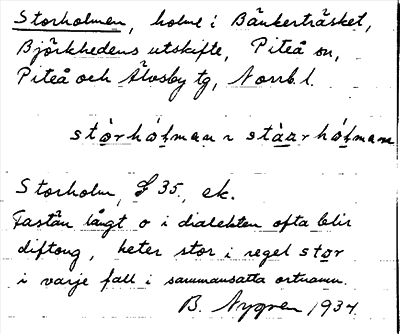 Storholmen, holme i Bänkerträsket,
Björkhedens utskifte, Piteå sn,
Piteå och Älvsby tg, Norrb. l.
stórhólman ~ stáarhólmam
Storholm, S 35, ek.
Fastän långt o i dialekten ofta blir
diftong, heter stor i regel stor
i varje fall i sammansatta ortnamn.
B. Nygren 1934.